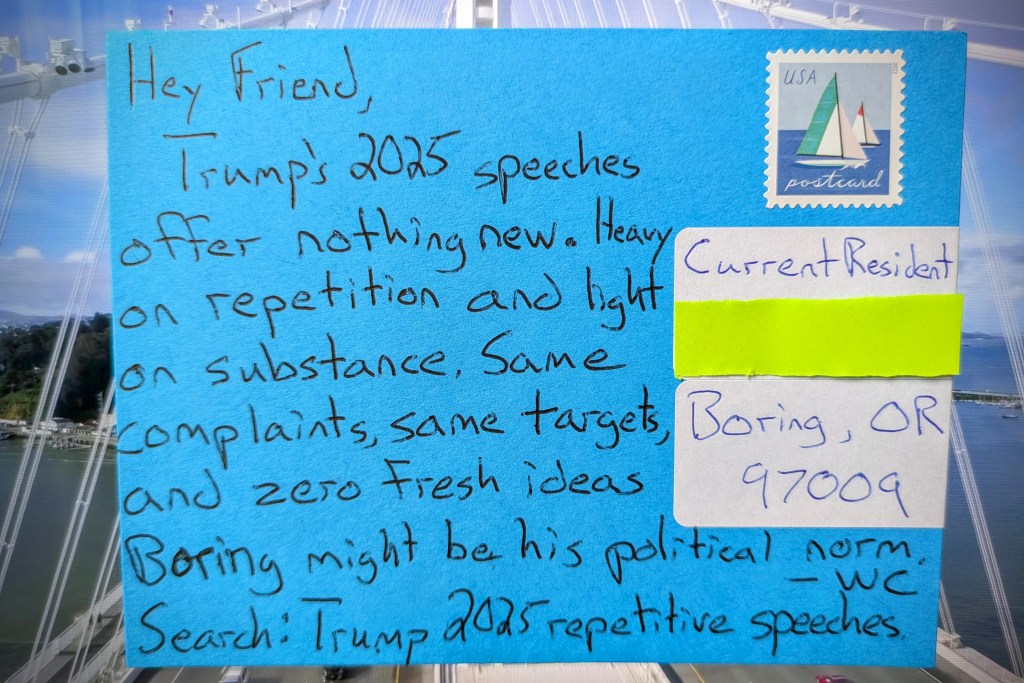 Hey Friend,
Trump's 2025 speeches
offer nothing new. Heavy
on repetition and light
on substance. Same
complaints, same targets,
and zero fresh ideas
Boring might be his political norm.
- WC
Search: Trump 2025 repetitive speeches.
USA
postcard
Current Resident
Boring, OR
97009